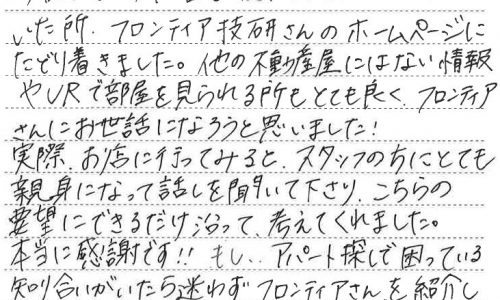 いた所、フロンティア技研さんのホームページに
たどり着きました。他の不動産屋にはない情報
やVRで部屋を見られる所もとても良く、フロンティア
さんにお世話になろうと思いました!
実際、お店に行ってみると、スタッフの方にとても
親身になって話しを聞いて下さり、こちらの
要望にできるだけ沿って、考えてくれました。
本当に感謝です!! もし、アパート探しで困っている
知り合いがいたら迷わずフロンティアさんを紹介し